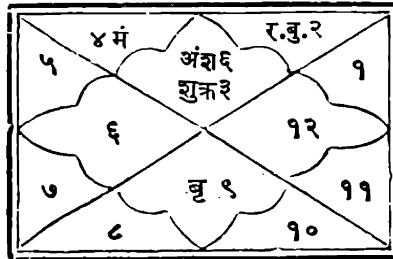 ४ मं
र.बु.२
अंश ६
शुक्र ३
५
१
६
१२
७
बृ ९
११
८
१०